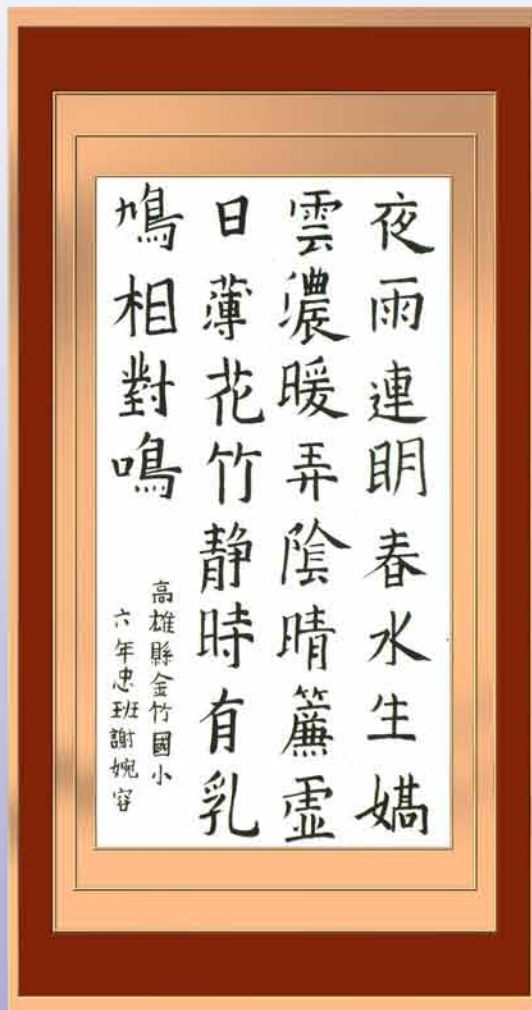 夜雨連明春水生嬌
雲濃暖弄陰晴簾虛
日薄花竹靜時有乳
鳩相對鳴
高雄縣金竹國小
六年忠班謝婉容